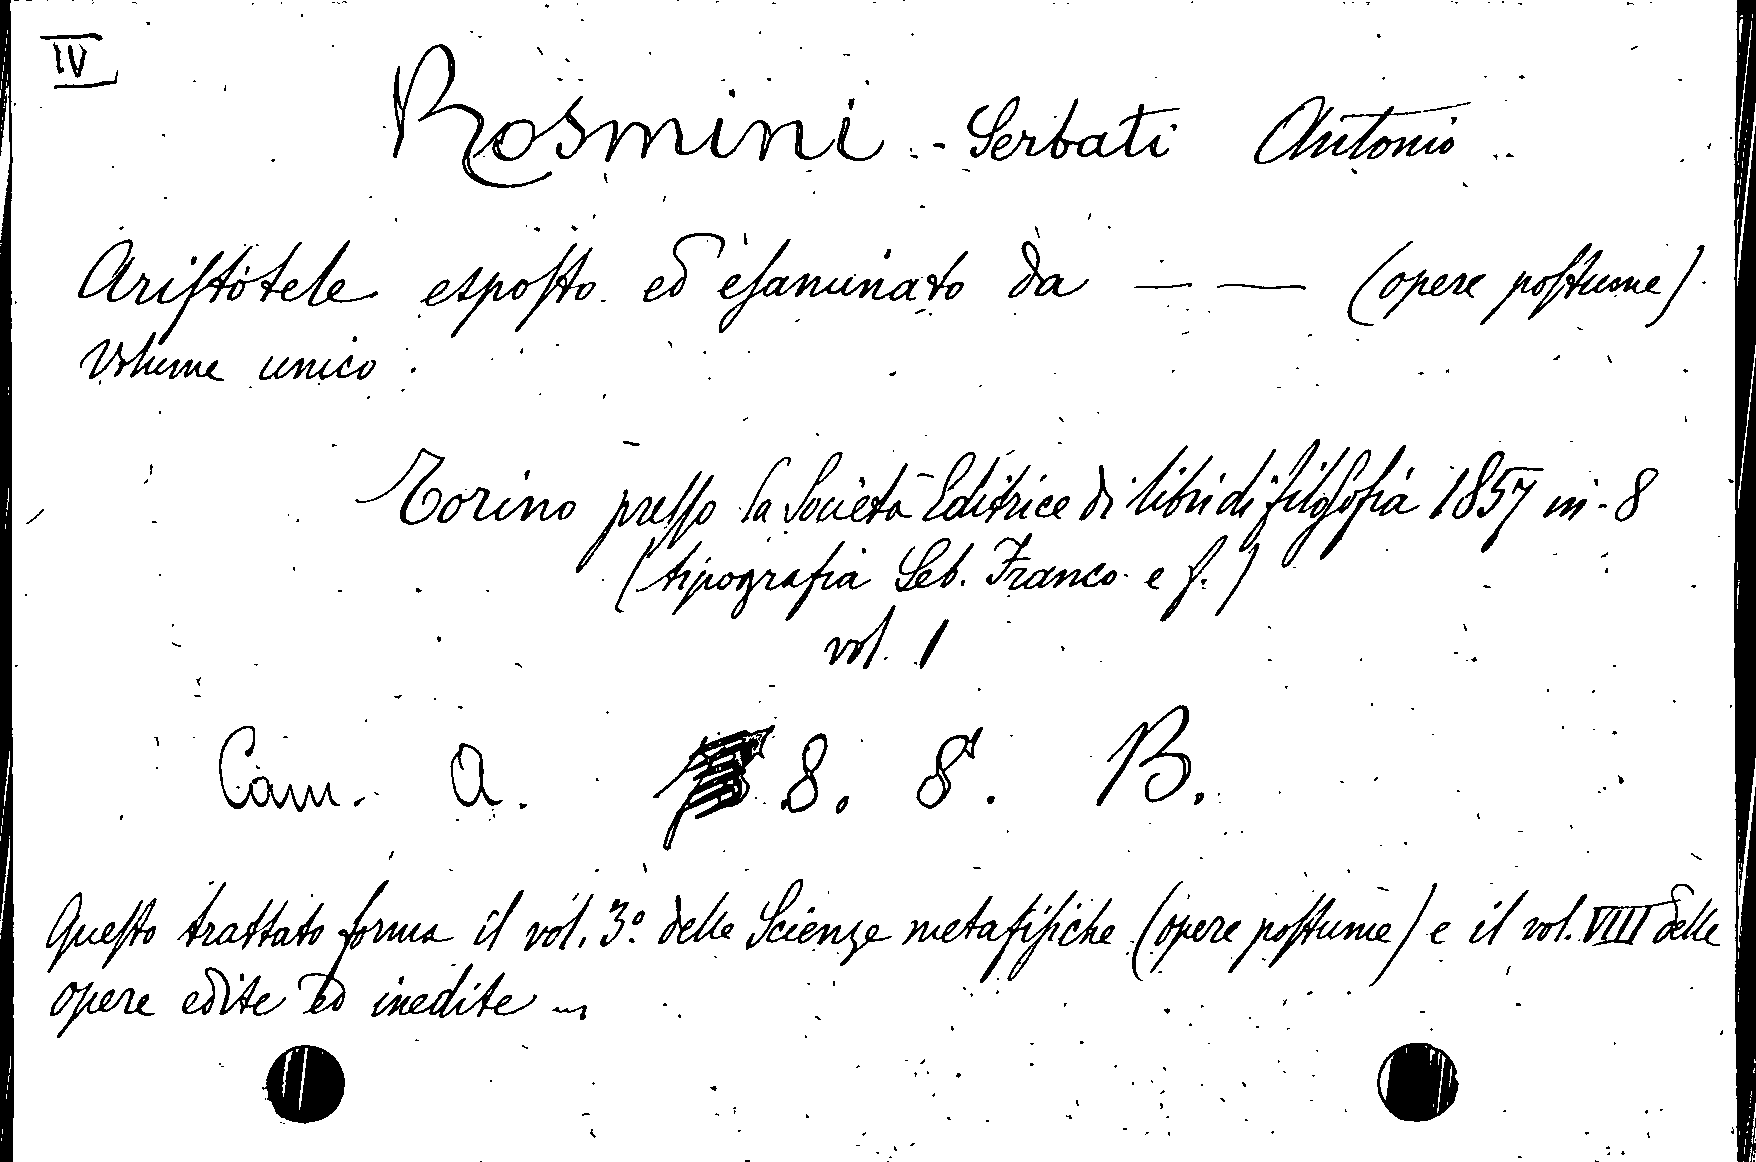 IV
Rosmini - Serbati Antonio
Aristotele esposto ed esaminato da — — (opere postume)
Volume unico
Torino presso la Società Editrice di libri di filosofia 1857 in-8
(tipografia Seb. Franco e f.)
vol. 1
Cam. A. 8. 8. B.
Questo trattato forma il vol. 3º delle Scienze metafisiche (opere postume) e il vol. VIII delle
opere edite ed inedite